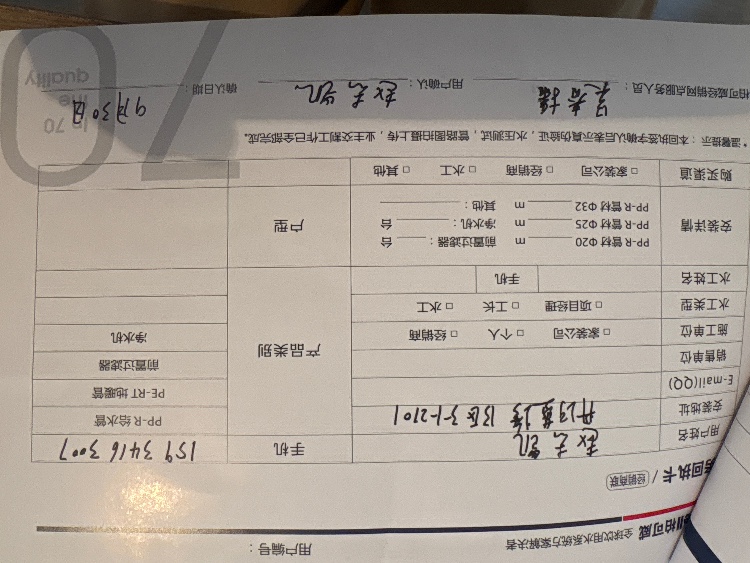 柏可威 全球饮用水系统方案解决者
用户编号：
回执卡 / 经销商联
用户姓名 赵志凯 手机 159 3416 3007
安装地址 13区3-1-2101
E-mail(QQ) PP-R 给水管
销售单位 PE-RT 地暖管
施工单位 □ 家装公司 □ 个人 □ 经销商 产品类别 前置过滤器
水工类型 □ 项目经理 □ 工长 □ 水工 净水机
水工姓名 手机
安装详情 PP-R 管材 Φ20 m 前置过滤器： 台 户型
PP-R 管材 Φ25 m 净水机： 台
PP-R 管材 Φ32 m 其他：
购买渠道 □ 家装公司 □ 经销商 □ 水工 □ 其他
*温馨提示：本回执签字确认后表示真伪验证，水压测试，管路图拍摄上传，业主交割工作已全部完成。*
柏可威经销网点服务人员： 用户确认：赵志凯 确认日期：9月30日
In 70
the
quality
70